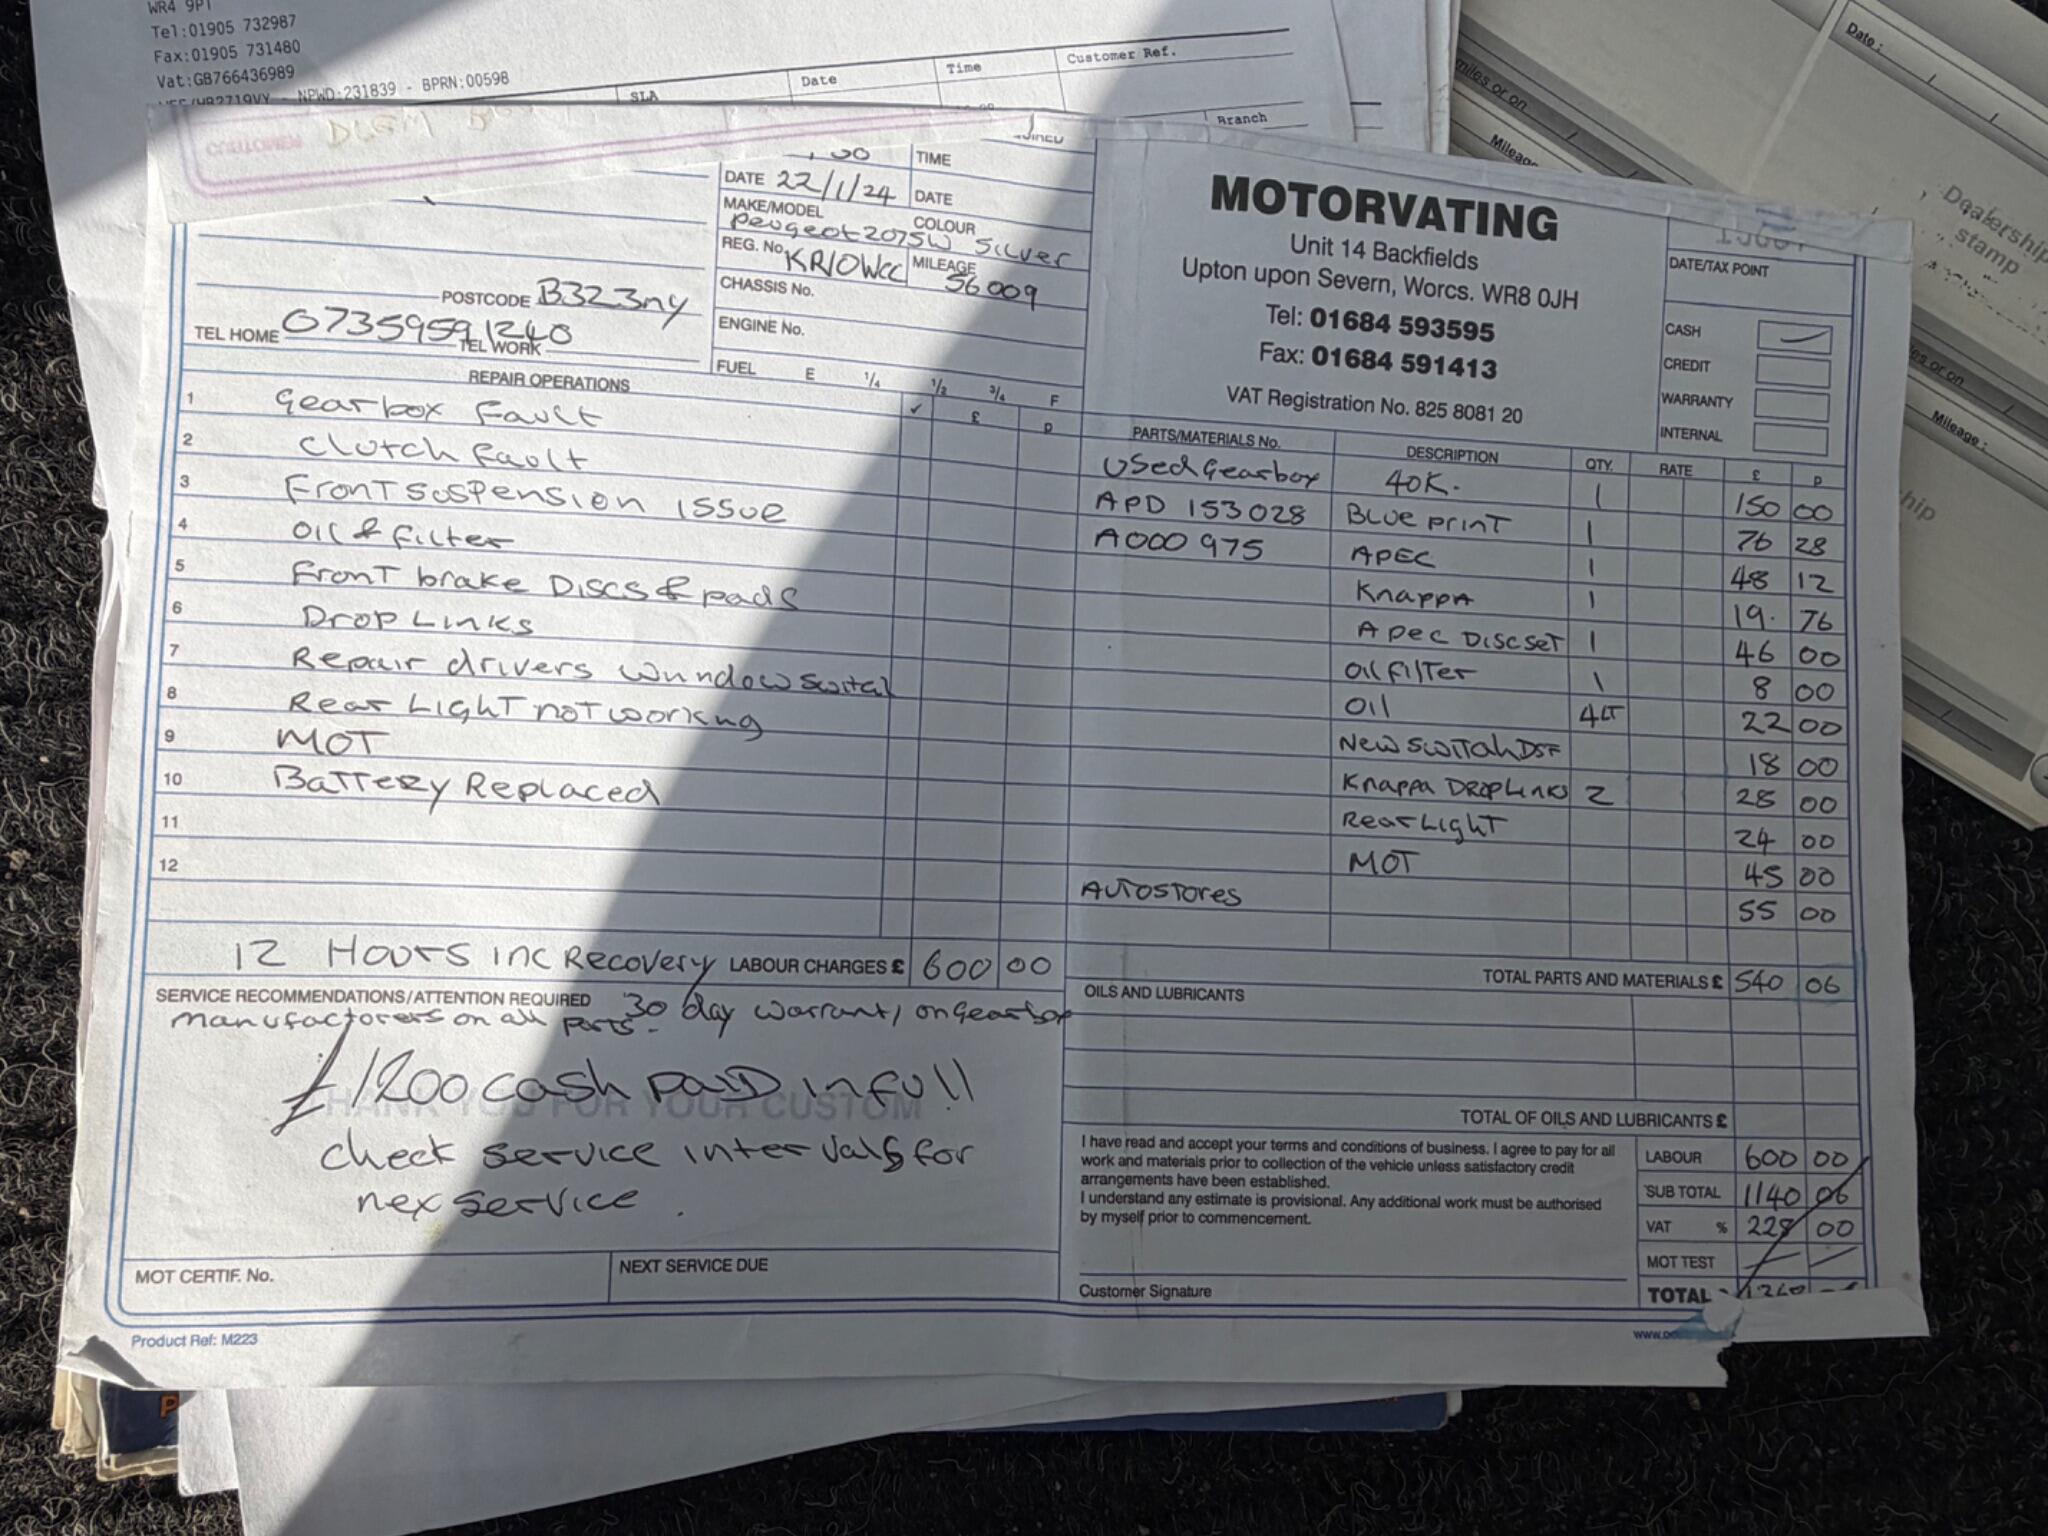 WR4 9PT
Tel:01905 732987
Fax:01905 731480
Vat:GB766436989
NPWD:231839 - BPRN:00598
SLA
Date
Time
Customer Ref.
Branch
Date:
miles or on
Mileage
Dealership stamp
miles or on
Mileage:
CUSTOMER
TIME
DATE 22/1/24
DATE
MAKE/MODEL Peugeot 207SW
COLOUR Silver
REG. No. KR10WCC
MILEAGE 56009
CHASSIS No.
ENGINE No.
FUEL E 1/4 1/2 3/4 F
POSTCODE B323ny
TEL HOME 07359591240
TEL WORK
MOTORVATING
Unit 14 Backfields
Upton upon Severn, Worcs. WR8 0JH
Tel: 01684 593595
Fax: 01684 591413
VAT Registration No. 825 8081 20
DATE/TAX POINT
CASH
CREDIT
WARRANTY
INTERNAL
REPAIR OPERATIONS ✓ £ p
1 Gearbox Fault
2 Clutch fault
3 Front suspension issue
4 Oil & filter
5 Front brake Discs & pads
6 Drop Links
7 Repair drivers wundow
8 Rear Light not working
9 MOT
10 Battery Replaced
11
12
12 Hours inc Recovery LABOUR CHARGES £ 600 00
PARTS/MATERIALS No. DESCRIPTION QTY. RATE £ p
Used Gearbox 40K. 1 150 00
APD 153028 Blue print 1 76 28
A000 975 APEC 1 48 12
Knappa 1 19. 76
Apec Disc set 1 46 00
oil filter 1 8 00
Oil 4LT 22 00
New switch DSF 18 00
Knappa Drop Links 2 28 00
Rear Light 24 00
MOT 45 00
AUTOSTORES 55 00
TOTAL PARTS AND MATERIALS £ 540 06
OILS AND LUBRICANTS
TOTAL OF OILS AND LUBRICANTS £
SERVICE RECOMMENDATIONS/ATTENTION REQUIRED
30 day warranty on Gearbox
manufactorers on all parts.
£1200 cash PAID in full
THANK YOU FOR YOUR CUSTOM
check service intervals for
nex service.
I have read and accept your terms and conditions of business. I agree to pay for all
work and materials prior to collection of the vehicle unless satisfactory credit
arrangements have been established.
I understand any estimate is provisional. Any additional work must be authorised
by myself prior to commencement.
Customer Signature
LABOUR 600 00
SUB TOTAL 1140 06
VAT % 228 00
MOT TEST
TOTAL
MOT CERTIF. No.
NEXT SERVICE DUE
Product Ref: M223